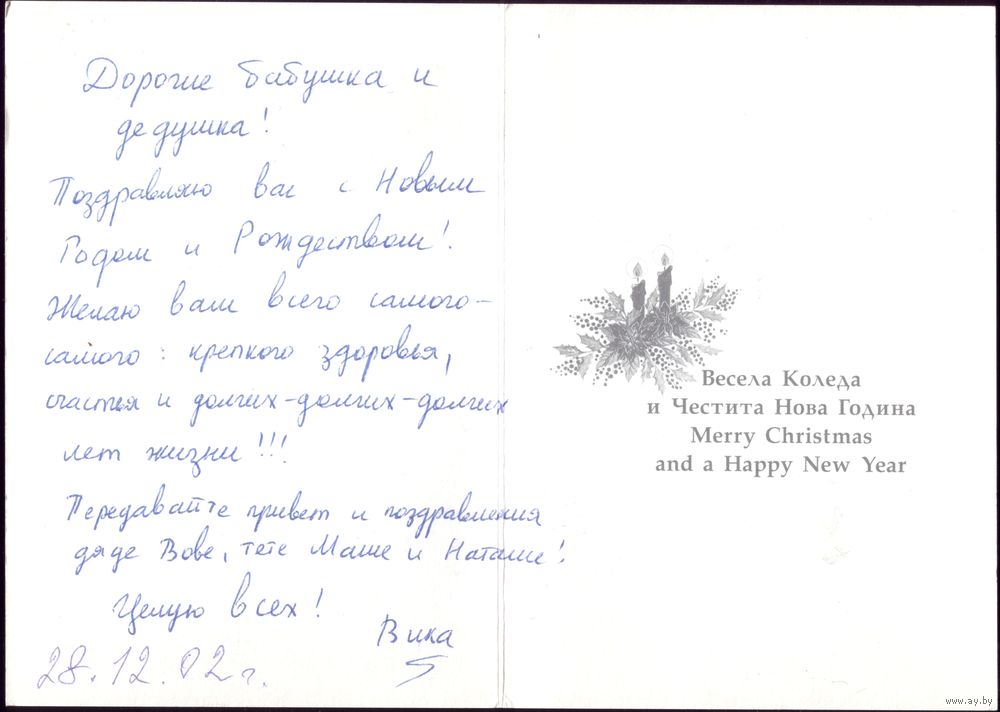 Дорогие бабушка и
дедушка!
Поздравляю вас с Новым
Годом и Рождеством!
Желаю вам всего самого-
самого: крепкого здоровья,
счастья и долгих-долгих-долгих
лет жизни!!!
Передавайте привет и поздравления
дяде Вове, тёте Маше и Наташе!
Целую всех!
Вика
28.12.02 г.
Весела Коледа
и Честита Нова Година
Merry Christmas
and a Happy New Year
www.ay.by